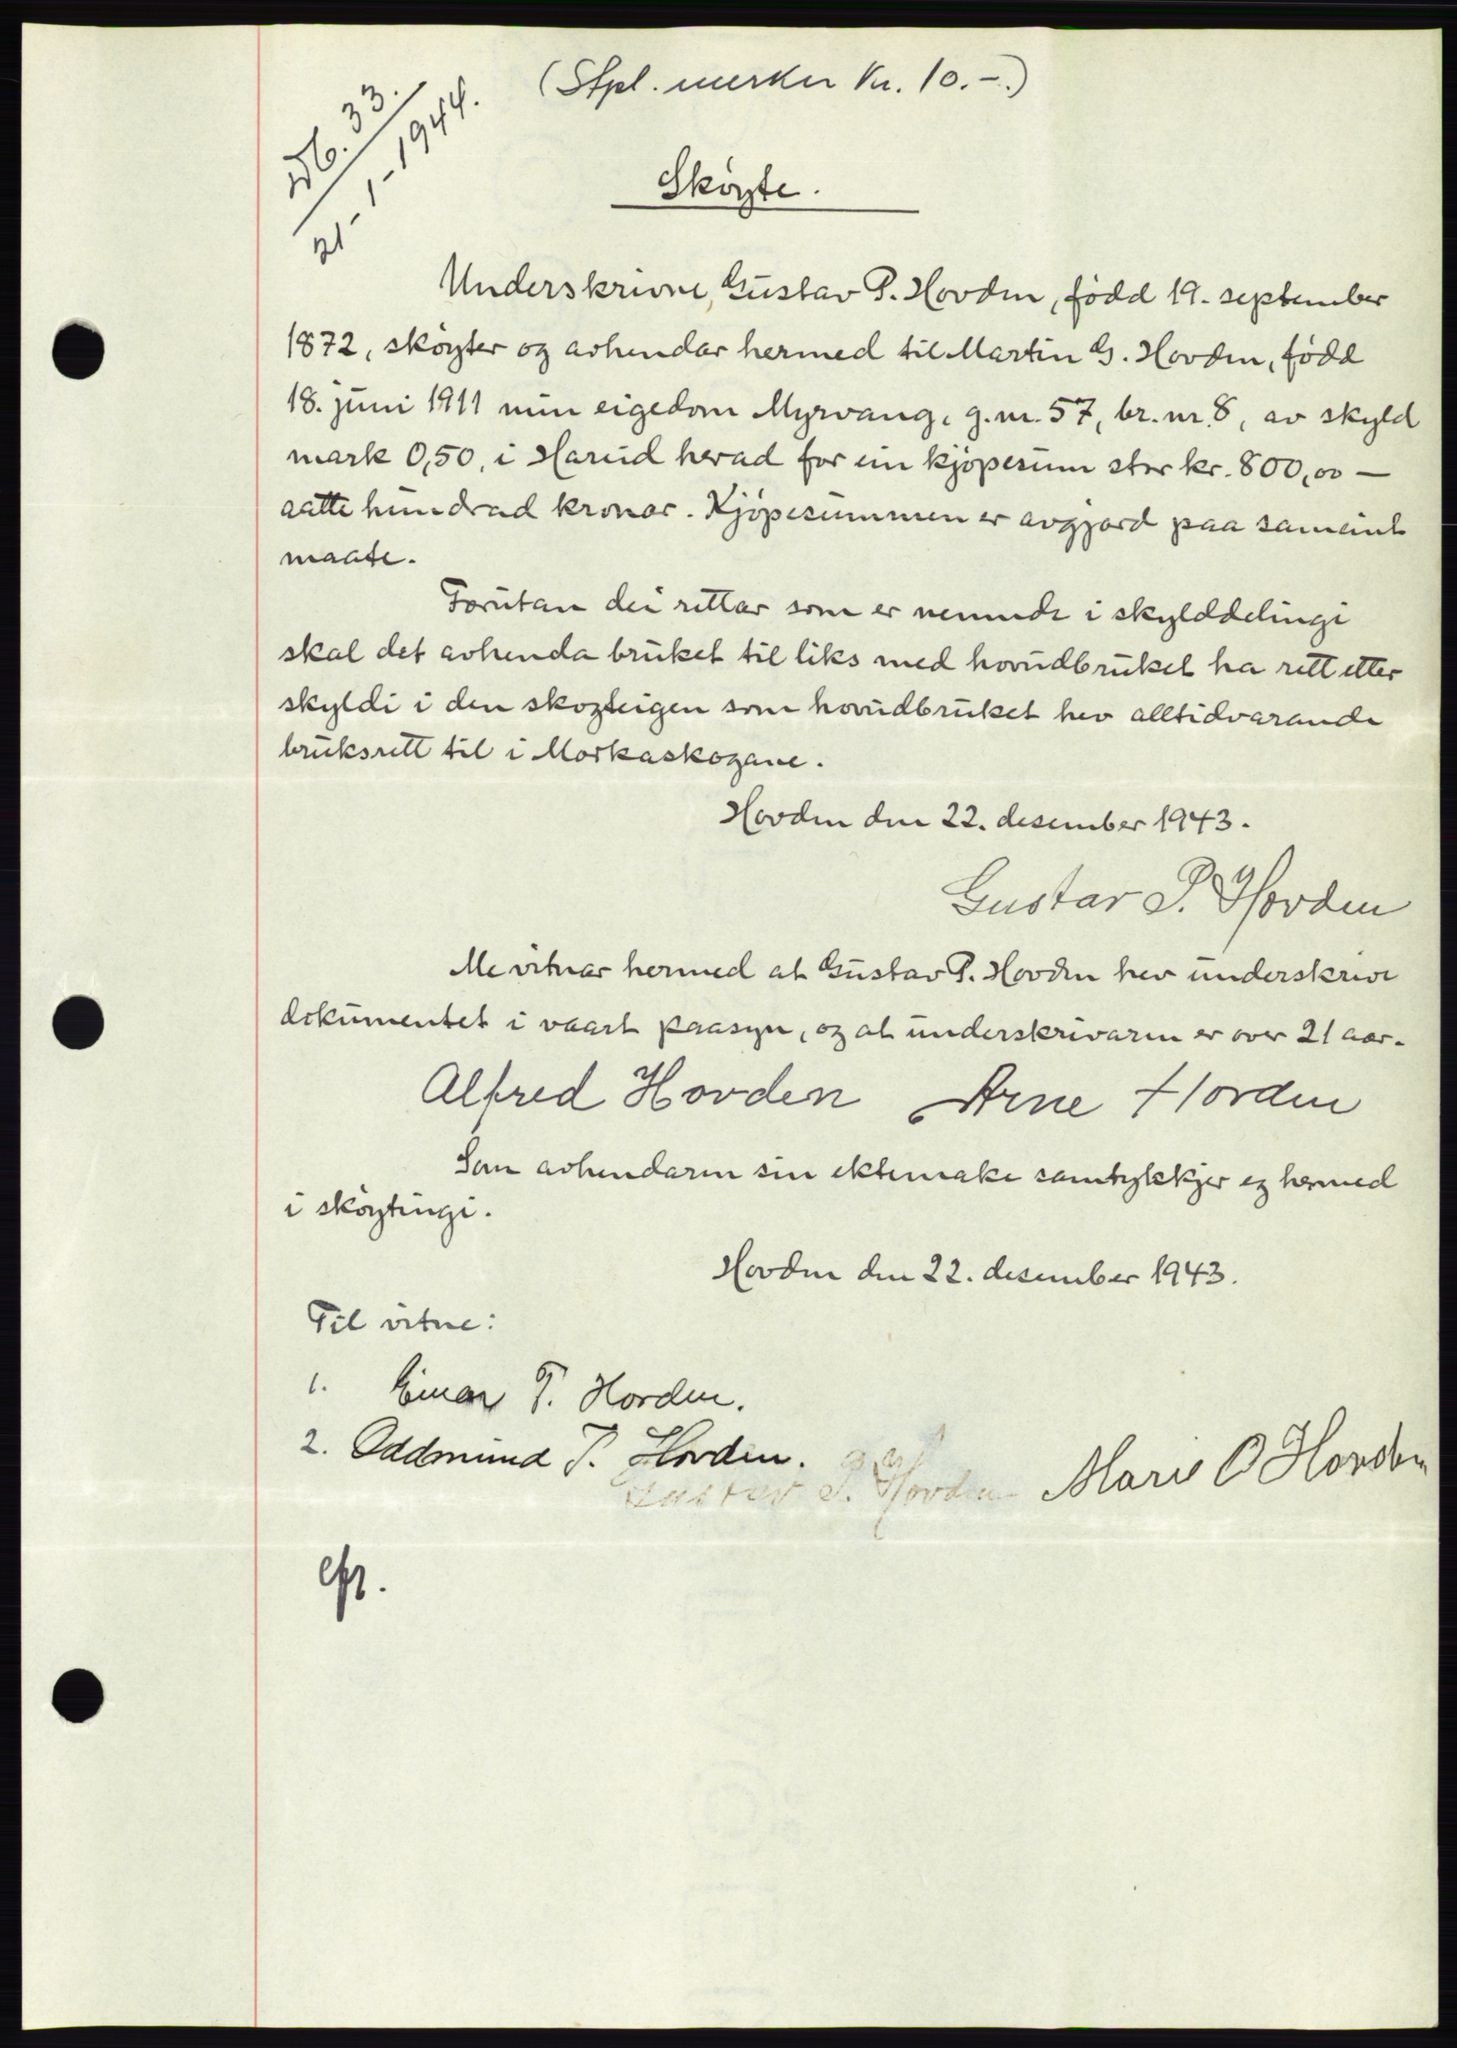 (Stpl. merker Kr. 10.-.)
Db. 33.
21-1-1944.
Sköyte.
Underskrivne, Gustav P. Hovden, född 19. september
1872, sköyter og avhendar hermed til Martin G. Hovden, född
18. juni 1911 min eigedom Myrvang, g.nr. 57, br. nr. 8, av skyld
mark 0,50, i Hareid herad for ein kjöpesum stor kr. 800,00 —
aatte hundrad kronor. Kjöpesummen er avgjord paa sameint
maate.
Forutan dei rettar som er nemnde i skylddelingi
skal det avhenda bruket til liks med hovudbruket ha rett etter
skyldi i den skogteigen som hovudbruket hev alltidvarande
bruksrett til i Morkaskogane.
Hovden den 22. desember 1943.
Gustav P. Hovden
Me vitnar hermed at Gustav P. Hovden hev underskrive
dokumentet i vaart paasyn, og at underskrivaren er over 21 aar.
Alfred Hovden Arne Hovden
Som avhendaren sin ektemake samtykkjer eg hermed
i sköytingi.
Hovden den 22. desember 1943.
Til vitne:
1. Einar P. Hovden.
2. Oddmund P. Hovden.
Gustav P. Hovden Marie O Hovden